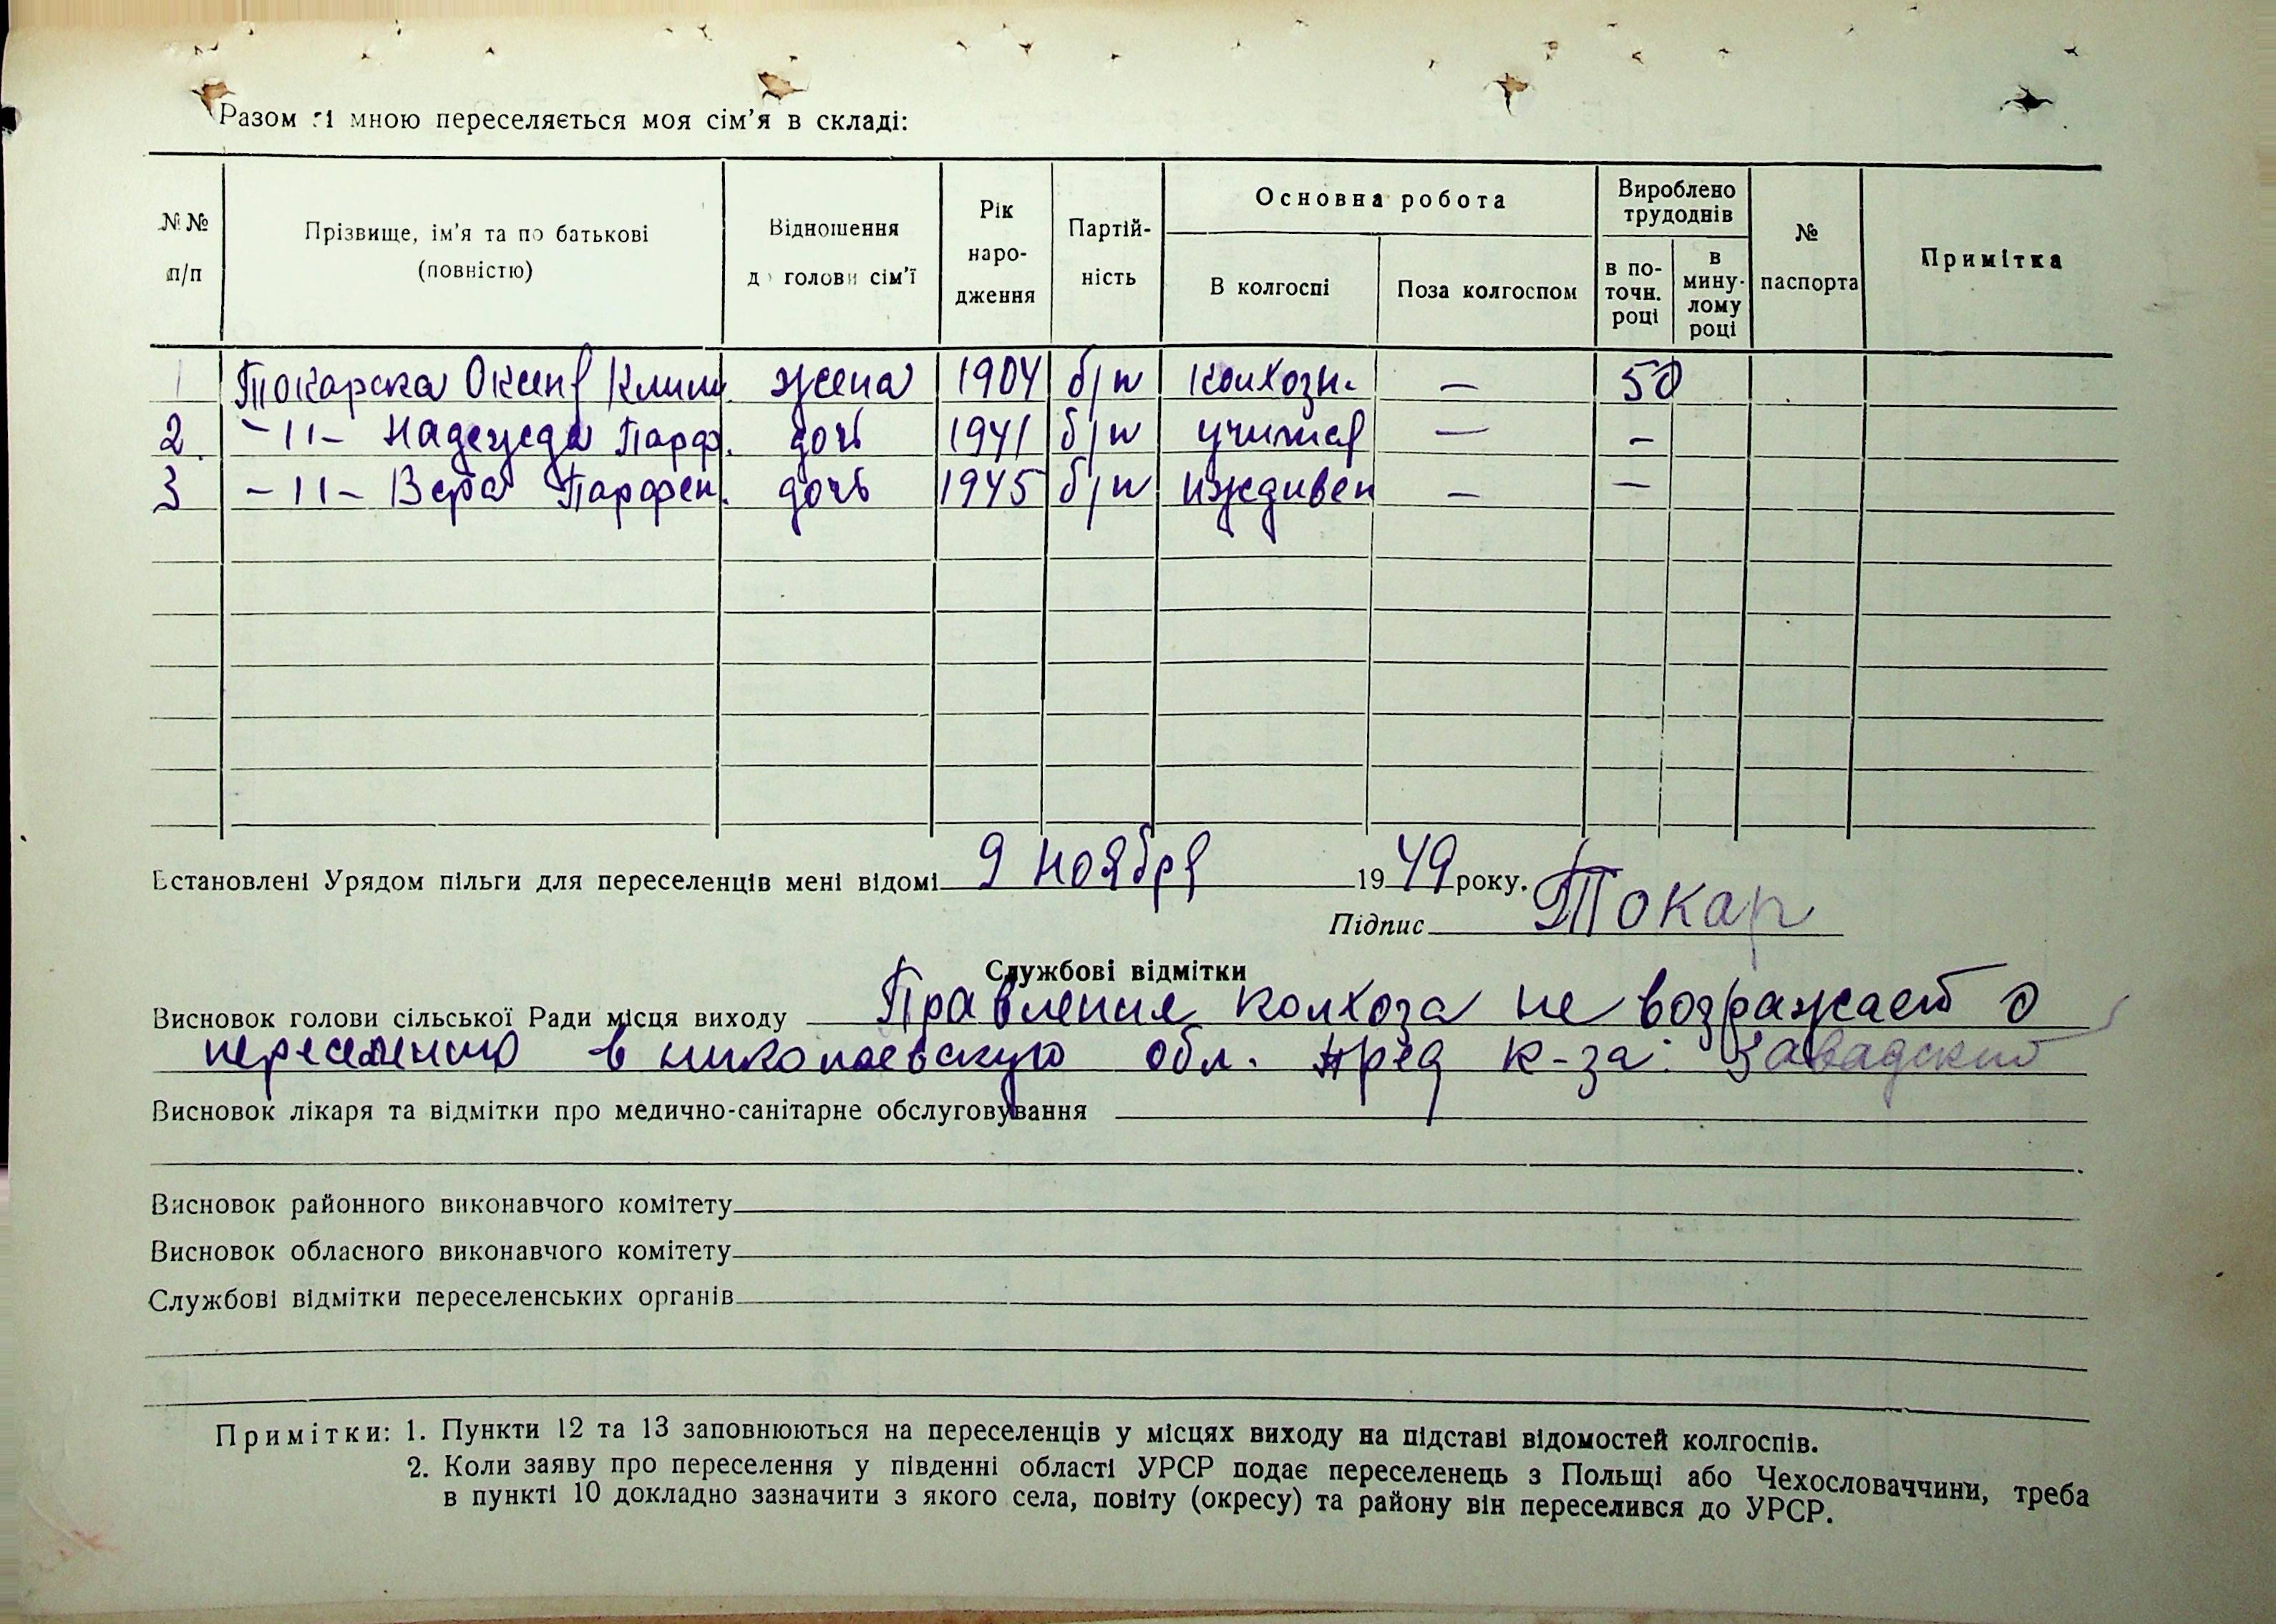 Разом зі мною переселяється моя сім'я в складі:
№№ п/п | Прізвище, ім'я та по батькові (повністю) | Відношення до голови сім'ї | Рік народження | Партійність | Основна робота | Вироблено трудоднів | № паспорта | Примітка
В колгоспі | Поза колгоспом | в поточн. році | в минулому році
1 Токарска Оксина Клим. жена 1904 б/п колхозн. — 50
2. -11- Надежда Парф. дочь 1941 б/п учится — —
3 -11- Вера Парфен. дочь 1945 б/п иждивен — —
Встановлені Урядом пільги для переселенців мені відомі 9 ноября 1949 року.
Підпис Токар
Службові відмітки
Висновок голови сільської Ради місця виходу Правление колхоза не возражает о
переселению в николаевскую обл. пред к-за: Завадский
Висновок лікаря та відмітки про медично-санітарне обслуговування
Висновок районного виконавчого комітету
Висновок обласного виконавчого комітету
Службові відмітки переселенських органів
Примітки: 1. Пункти 12 та 13 заповнюються на переселенців у місцях виходу на підставі відомостей колгоспів.
2. Коли заяву про переселення у південні області УРСР подає переселенець з Польщі або Чехословаччини, треба
в пункті 10 докладно зазначити з якого села, повіту (окресу) та району він переселився до УРСР.